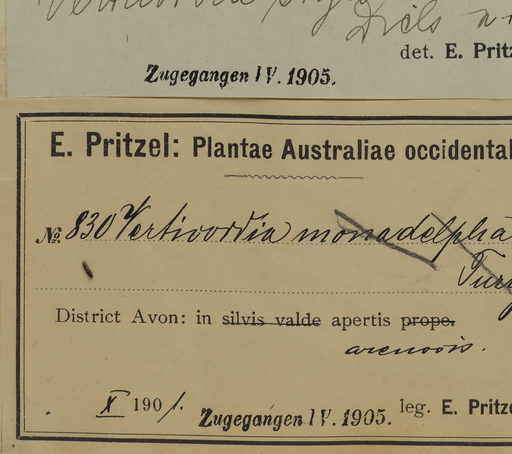 Verticordia
Diels n
det. E. Pritz
Zugegangen IV. 1905.
E. Pritzel: Plantae Australiae occidental
No. 830 Verticordia monadelpha
Turc
District Avon: in silvis valde apertis prope.
arenosis.
X 1901. Zugegangen IV. 1905. leg. E. Pritze